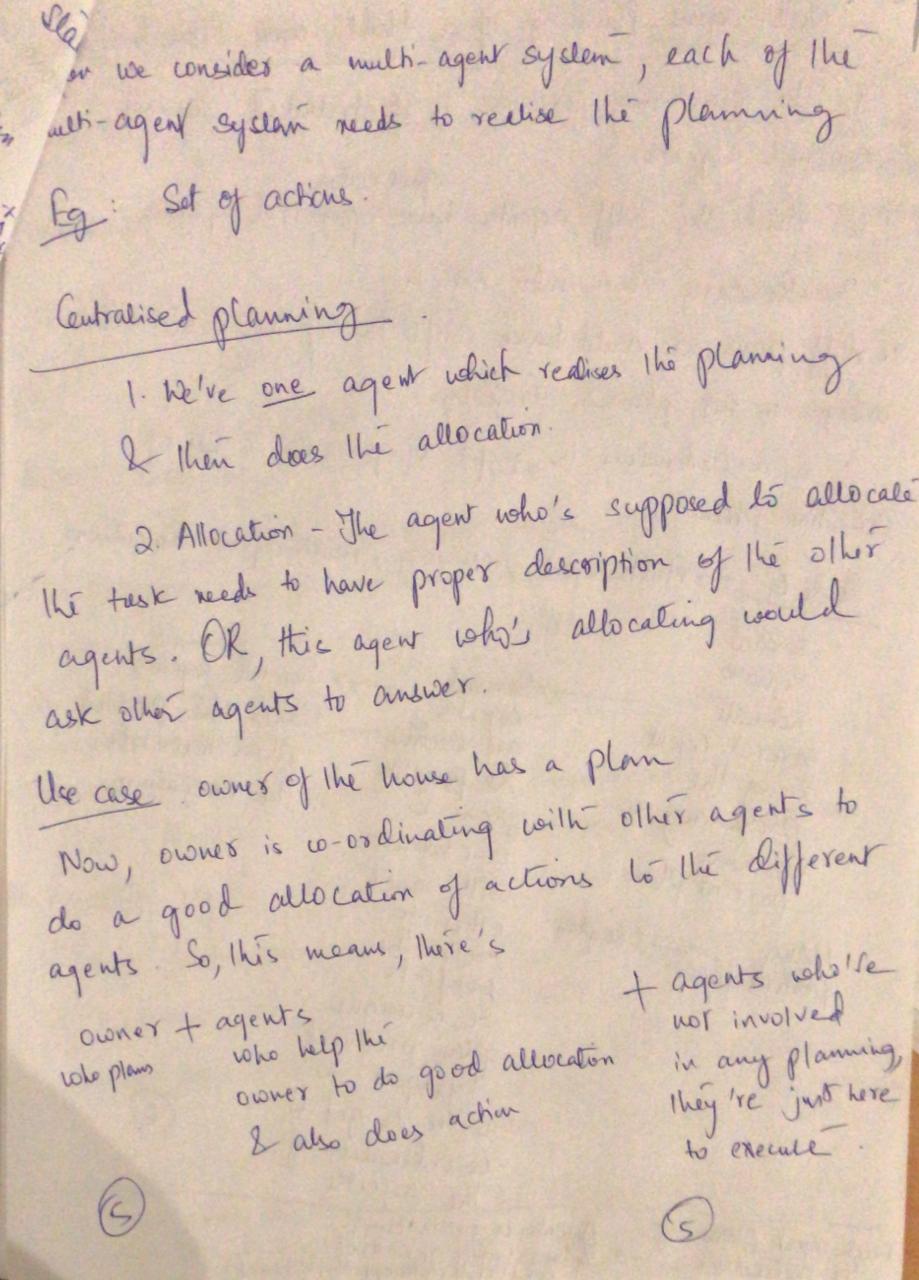 Sla
we consider a multi-agent system, each of the
multi-agent system needs to realise the planning
Eg: Set of actions.
Centralised planning.
1. We've one agent which realises the planning
& then does the allocation.
2. Allocation - The agent who's supposed to allocate
the task needs to have proper description of the other
agents. OR, this agent who's allocating would
ask other agents to answer.
Use case. owner of the house has a plan
Now, owner is co-ordinating with other agents to
do a good allocation of actions to the different
agents. So, this means, there's
owner + agents
who plans
who help the
owner to do good allocation
& also does action
+ agents who're
not involved
in any planning,
they're just here
to execute.
5
5